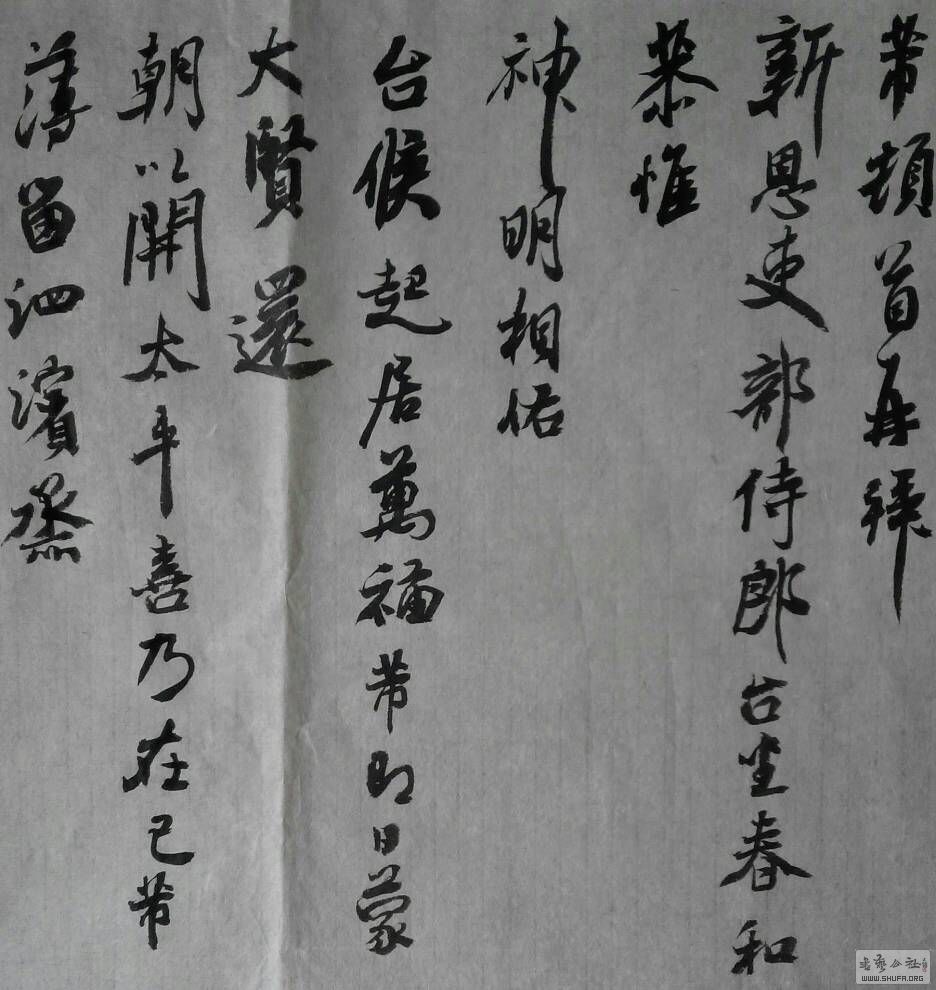 芾頓首再拜
新恩吏部侍郎台坐春和
恭惟
神明相佑
台候起居萬福芾即日蒙
大賢還
朝以開太平喜乃在已芾
薄留泗濱烝
书艺公社
WWW.SHUFA.ORG